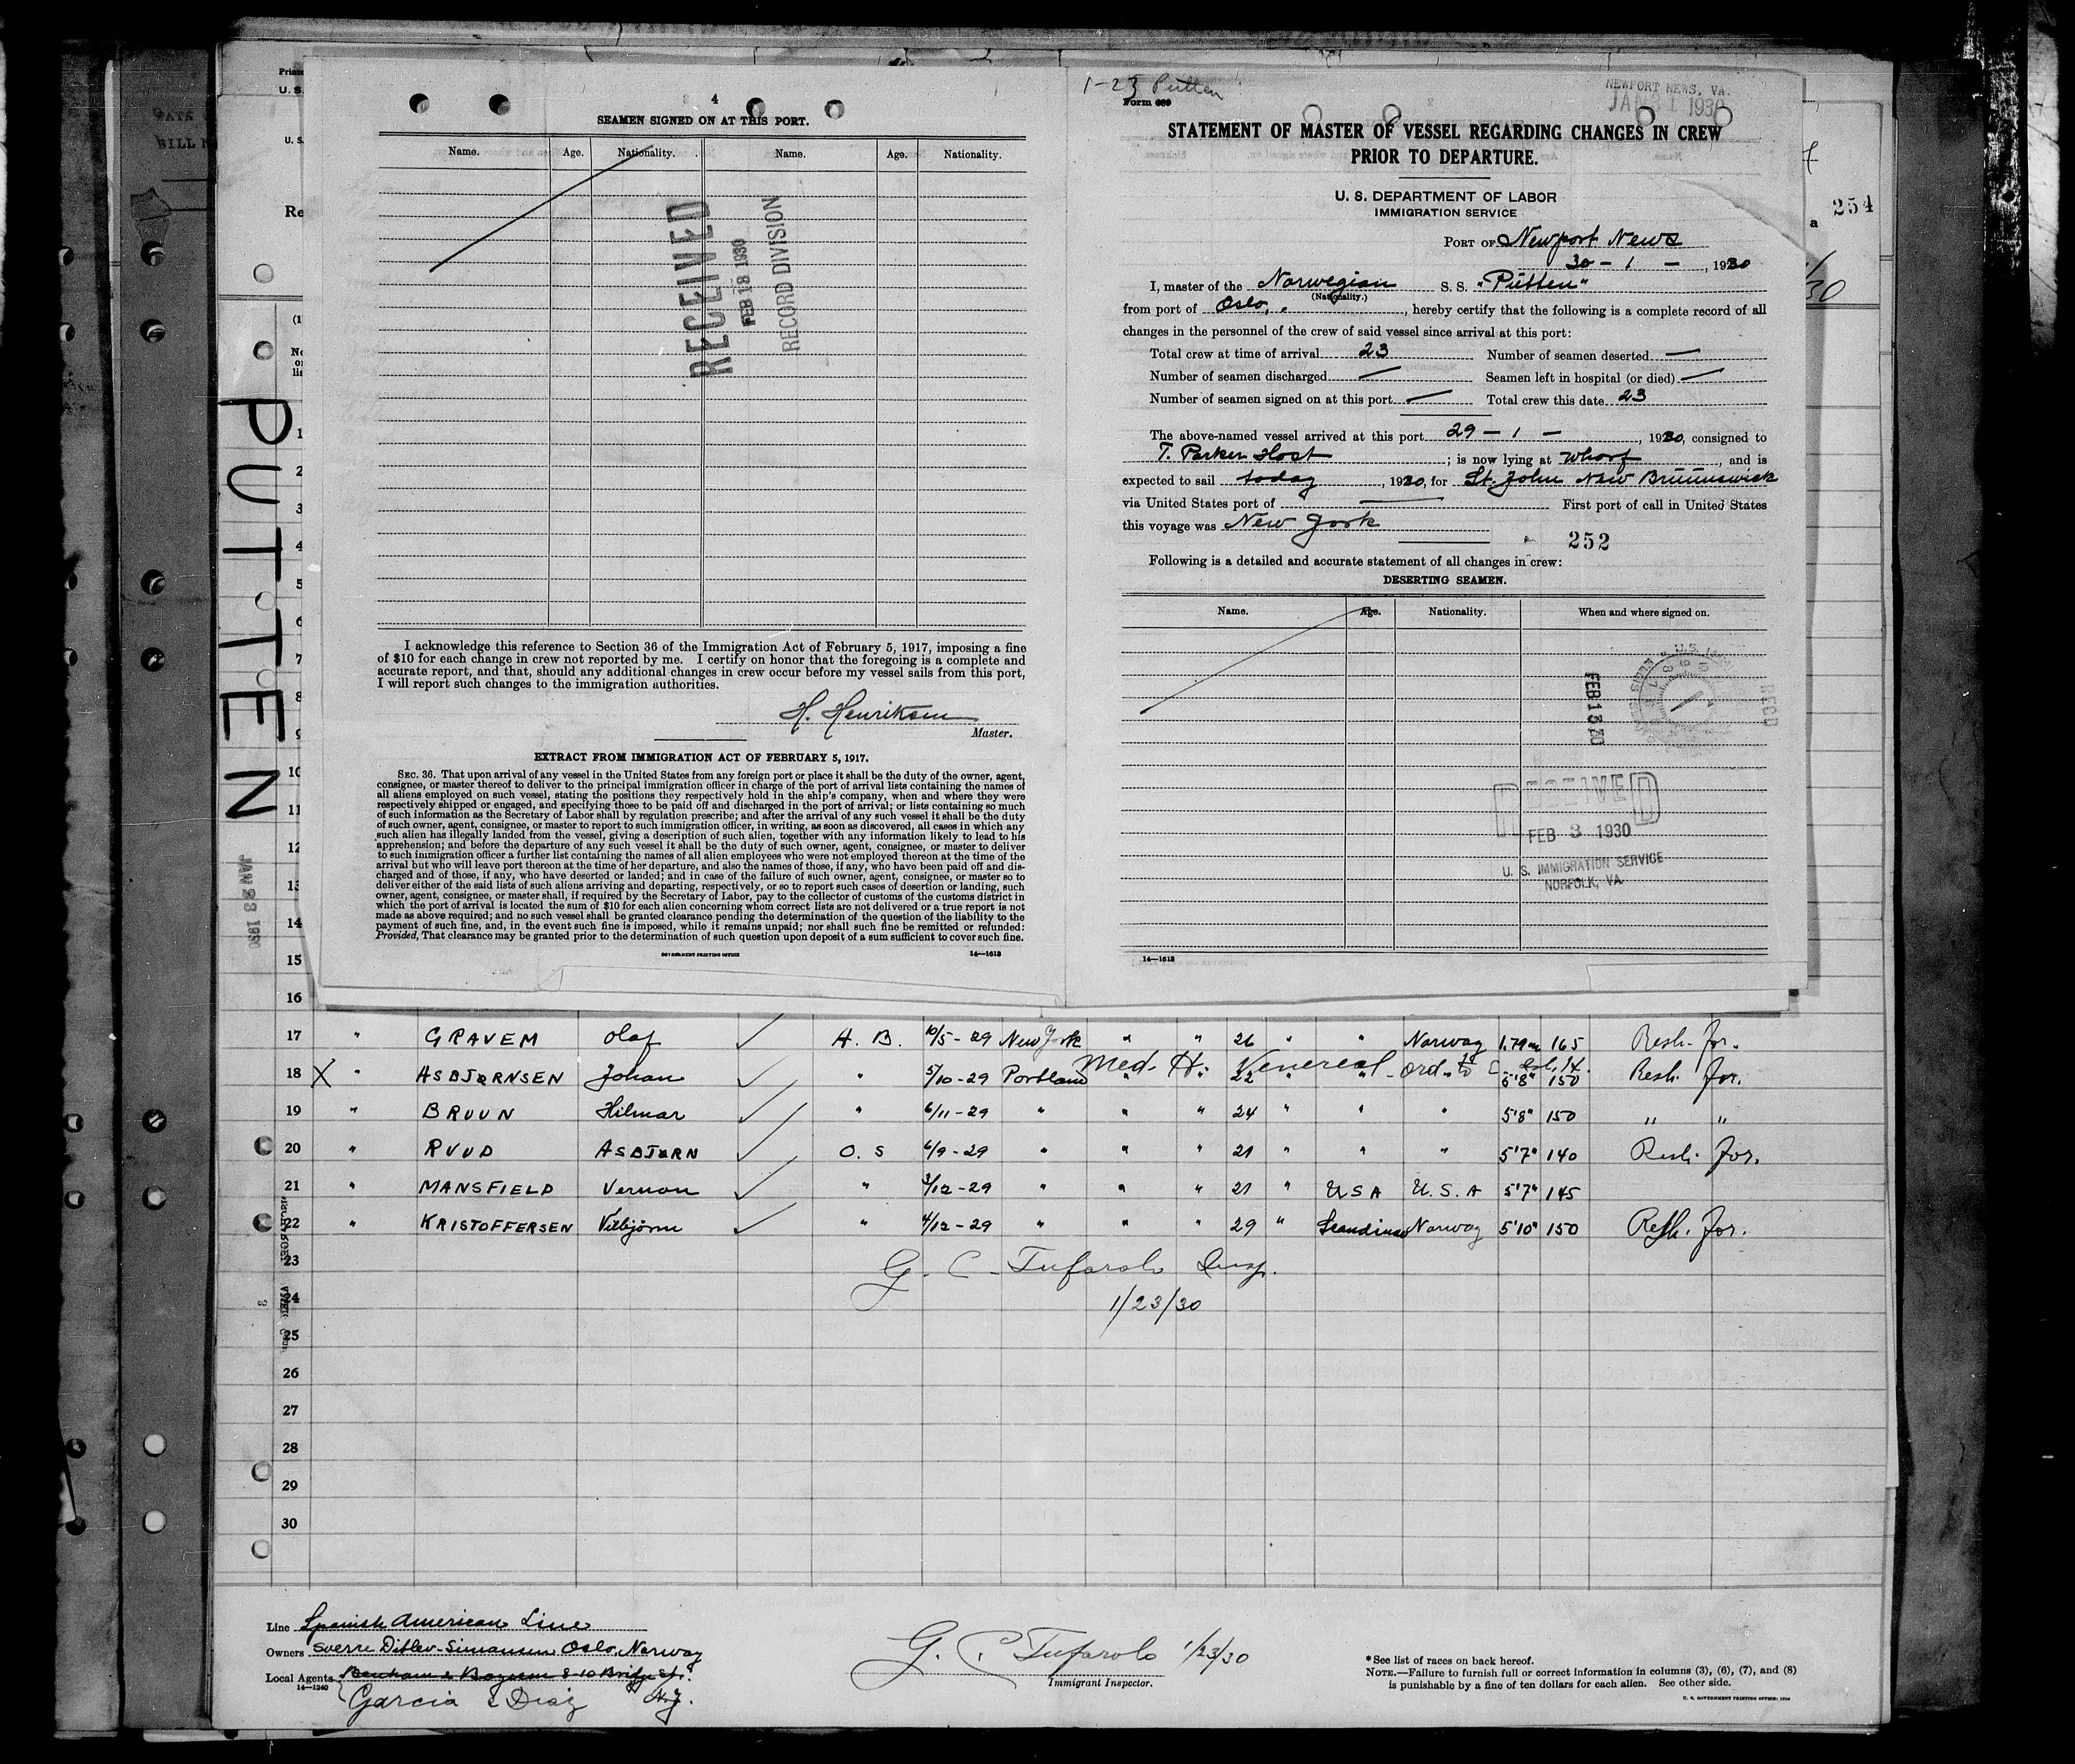 4
SEAMEN SIGNED ON AT THIS PORT.
Name. Age. Nationality. Name. Age. Nationality.
RECEIVED
FEB 18 1930
RECORD DIVISION
I acknowledge this reference to Section 36 of the Immigration Act of February 5, 1917, imposing a fine
of $10 for each change in crew not reported by me. I certify on honor that the foregoing is a complete and
accurate report, and that, should any additional changes in crew occur before my vessel sails from this port,
I will report such changes to the immigration authorities.
H. Henriksen
Master.
EXTRACT FROM IMMIGRATION ACT OF FEBRUARY 5, 1917.
SEC. 36. That upon arrival of any vessel in the United States from any foreign port or place it shall be the duty of the owner, agent,
consignee, or master thereof to deliver to the principal immigration officer in charge of the port of arrival lists containing the names of
all aliens employed on such vessel, stating the positions they respectively hold in the ship's company, when and where they were
respectively shipped or engaged, and specifying those to be paid off and discharged in the port of arrival; or lists containing so much
of such information as the Secretary of Labor shall by regulation prescribe; and after the arrival of any such vessel it shall be the duty
of such owner, agent, consignee, or master to report to such immigration officer, in writing, as soon as discovered, all cases in which any
such alien has illegally landed from the vessel, giving a description of such alien, together with any information likely to lead to his
apprehension; and before the departure of any such vessel it shall be the duty of such owner, agent, consignee, or master to deliver
to such immigration officer a further list containing the names of all alien employees who were not employed thereon at the time of the
arrival but who will leave port thereon at the time of her departure, and also the names of those, if any, who have been paid off and dis-
charged and of those, if any, who have deserted or landed; and in case of the failure of such owner, agent, consignee, or master so to
deliver either of the said lists of such aliens arriving and departing, respectively, or so to report such cases of desertion or landing, such
owner, agent, consignee, or master shall, if required by the Secretary of Labor, pay to the collector of customs of the customs district in
which the port of arrival is located the sum of $10 for each alien concerning whom correct lists are not delivered or a true report is not
made as above required; and no such vessel shall be granted clearance pending the determination of the question of the liability to the
payment of such fine, and, in the event such fine is imposed, while it remains unpaid; nor shall such fine be remitted or refunded:
Provided, That clearance may be granted prior to the determination of such question upon deposit of a sum sufficient to cover such fine.
GOVERNMENT PRINTING OFFICE 14—1613
1-23 Putten
Form 689
NEWPORT NEWS, VA.
JAN 31 1930
STATEMENT OF MASTER OF VESSEL REGARDING CHANGES IN CREW
PRIOR TO DEPARTURE.
U. S. DEPARTMENT OF LABOR
IMMIGRATION SERVICE
PORT OF Newport News
30 - 1 - , 1930
I, master of the Norwegian S. S. "Putten"
(Nationality.)
from port of Oslo, , hereby certify that the following is a complete record of all
changes in the personnel of the crew of said vessel since arrival at this port:
Total crew at time of arrival 23 Number of seamen deserted —
Number of seamen discharged — Seamen left in hospital (or died) —
Number of seamen signed on at this port — Total crew this date 23
The above-named vessel arrived at this port 29 - 1 - , 1930, consigned to
T. Parker Host ; is now lying at wharf , and is
expected to sail today , 1930, for St. John New Brunnswick
via United States port of — First port of call in United States
this voyage was New York
252
Following is a detailed and accurate statement of all changes in crew:
DESERTING SEAMEN.
Name. Age. Nationality. When and where signed on.
FEB 13 30
REC'D
RECEIVED
FEB 3 1930
U. S. IMMIGRATION SERVICE
NORFOLK, VA.
14—1613
254
PUTTEN
JAN 23 1930
1
2
3
4
5
6
7
8
9
10
11
12
13
14
15
16
17 " GRAVEM Olaf A. B. 10/5 - 29 New York " " 26 " " Norway 1.79m 165 Resh. for.
Med. H. Venereal - ord. to
18 X " ASBJØRNSEN Johan 5/10 - 29 Portland " " 22 " " " 5'8" 150 Resh. for.
19 " BRUUN Hilmar " 6/11 - 29 " " " 24 " " " 5'8" 150 " "
20 " RUUD ASBJØRN O. S 6/9 - 29 " " " 21 " " " 5'7" 140 Resh. for.
21 " MANSFIELD Vernon " 3/12 - 29 " " " 21 " USA U. S. A 5'7" 145
22 " KRISTOFFERSEN " 4/12 - 29 " " " 29 " Scandinav Norway 5'10" 150 Resh. for.
23 G. C. Tufarolo Insp.
24 1/23/30
25
26
27
28
29
30
Line Spanish American Line
Owners Sverre Ditlev-Simonsen Oslo, Norway
Local Agents Benham & Boyesen 8-10 Bridge St.
14—1240
Garcia & Diaz N.Y.
G. C. Tufarolo 1/23/30
Immigrant Inspector.
* See list of races on back hereof.
NOTE.—Failure to furnish full or correct information in columns (3), (6), (7), and (8)
is punishable by a fine of ten dollars for each alien. See other side.